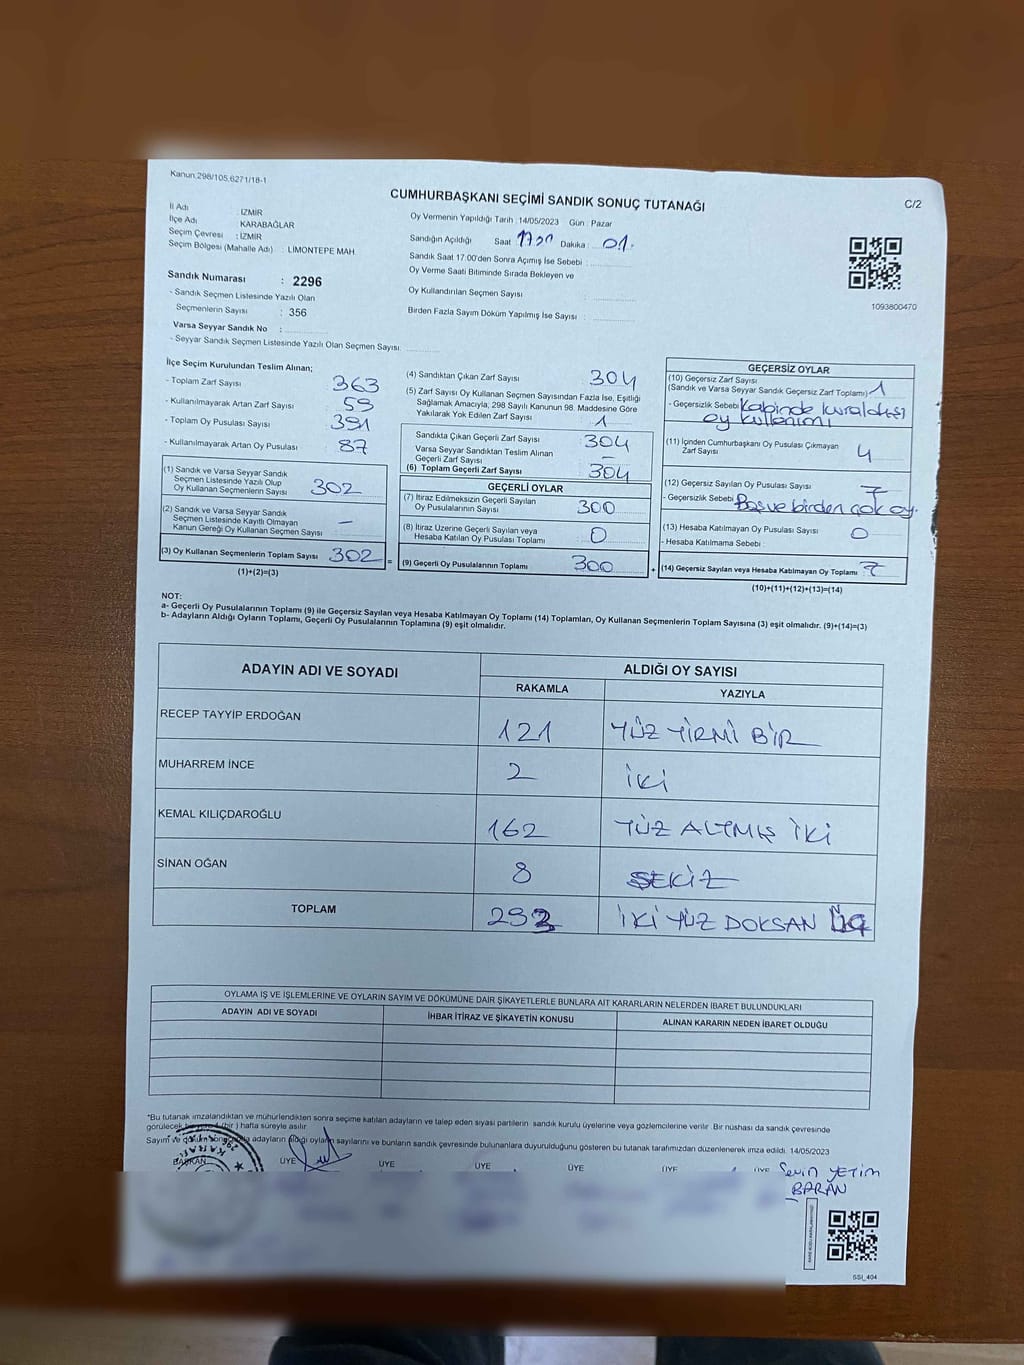 Kanun,298/105,6271/18-1
CUMHURBAŞKANI SEÇİMİ SANDIK SONUÇ TUTANAĞI
C/2
İl Adı : İZMİR
İlçe Adı : KARABAĞLAR
Seçim Çevresi : İZMİR
Seçim Bölgesi (Mahalle Adı) : LİMONTEPE MAH
Sandık Numarası : 2296
- Sandık Seçmen Listesinde Yazılı Olan
Seçmenlerin Sayısı : 356
Varsa Seyyar Sandık No :
- Seyyar Sandık Seçmen Listesinde Yazılı Olan Seçmen Sayısı:
Oy Vermenin Yapıldığı Tarih :14/05/2023 Gün : Pazar
Sandığın Açıldığı Saat Dakika : 01.
Sandık Saat 17.00'den Sonra Açımış İse Sebebi :
Oy Verme Saati Bitiminde Sırada Bekleyen ve
Oy Kullandırılan Seçmen Sayısı :
Birden Fazla Sayım Döküm Yapılmış İse Sayısı :
1093800470
İlçe Seçim Kurulundan Teslim Alınan;
- Toplam Zarf Sayısı 363
- Kullanılmayarak Artan Zarf Sayısı 59
- Toplam Oy Pusulası Sayısı 391
- Kullanılmayarak Artan Oy Pusulası 87
(1) Sandık ve Varsa Seyyar Sandık
Seçmen Listesinde Yazılı Olup
Oy Kullanan Seçmenlerin Sayısı 302
(2) Sandık ve Varsa Seyyar Sandık
Seçmen Listesinde Kayıtlı Olmayan
Kanun Gereği Oy Kullanan Seçmen Sayısı —
(3) Oy Kullanan Seçmenlerin Toplam Sayısı 302 =
(1)+(2)=(3)
(4) Sandıktan Çıkan Zarf Sayısı 304
(5) Zarf Sayısı Oy Kullanan Seçmen Sayısından Fazla İse, Eşitliği
Sağlamak Amacıyla; 298 Sayılı Kanunun 98. Maddesine Göre
Yakılarak Yok Edilen Zarf Sayısı 1
Sandıkta Çıkan Geçerli Zarf Sayısı 304
Varsa Seyyar Sandıktan Teslim Alınan
Geçerli Zarf Sayısı —
(6) Toplam Geçerli Zarf Sayısı 304
GEÇERLİ OYLAR
(7) İtiraz Edilmeksizin Geçerli Sayılan
Oy Pusulalarının Sayısı 300
(8) İtiraz Üzerine Geçerli Sayılan veya
Hesaba Katılan Oy Pusulası Toplamı 0
(9) Geçerli Oy Pusulalarının Toplamı 300 +
GEÇERSİZ OYLAR
(10) Geçersiz Zarf Sayısı
(Sandık ve Varsa Seyyar Sandık Geçersiz Zarf Toplamı) 1
- Geçersizlik Sebebi Kabinde kuraldışı
oy kullanımı
(11) İçinden Cumhurbaşkanı Oy Pusulası Çıkmayan
Zarf Sayısı 4
(12) Geçersiz Sayılan Oy Pusulası Sayısı 7
- Geçersizlik Sebebi Boş ve birden çok oy.
(13) Hesaba Katılmayan Oy Pusulası Sayısı 0
- Hesaba Katılmama Sebebi :
(14) Geçersiz Sayılan veya Hesaba Katılmayan Oy Toplamı 7
(10)+(11)+(12)+(13)=(14)
NOT:
a- Geçerli Oy Pusulalarının Toplamı (9) ile Geçersiz Sayılan veya Hesaba Katılmayan Oy Toplamı (14) Toplamları, Oy Kullanan Seçmenlerin Toplam Sayısına (3) eşit olmalıdır. (9)+(14)=(3)
b- Adayların Aldığı Oyların Toplamı, Geçerli Oy Pusulalarının Toplamına (9) eşit olmalıdır.
ADAYIN ADI VE SOYADI ALDIĞI OY SAYISI
RAKAMLA YAZIYLA
RECEP TAYYİP ERDOĞAN 121 YÜZ YİRMİ BİR
MUHARREM İNCE 2 İKİ
KEMAL KILIÇDAROĞLU 162 YÜZ ALTMIŞ İKİ
SİNAN OĞAN 8 SEKİZ
TOPLAM 293 İKİ YÜZ DOKSAN ÜÇ
OYLAMA İŞ VE İŞLEMLERİNE VE OYLARIN SAYIM VE DÖKÜMÜNE DAİR ŞİKAYETLERLE BUNLARA AİT KARARLARIN NELERDEN İBARET BULUNDUKLARI
ADAYIN ADI VE SOYADI İHBAR İTİRAZ VE ŞİKAYETİN KONUSU ALINAN KARARIN NEDEN İBARET OLDUĞU
*Bu tutanak imzalandıktan ve mühürlendikten sonra seçime katılan adayların ve talep eden siyasi partilerin sandık kurulu üyelerine veya gözlemcilerine verilir. Bir nüshası da sandık çevresinde
görülecek bir yere 1 (bir) hafta süreyle asılır.
Sayım ve döküm sonucunda adayların aldığı oyların sayılarını ve bunların sandık çevresinde bulunanlara duyurulduğunu gösteren bu tutanak tarafımızdan düzenlenerek imza edildi. 14/05/2023
BAŞKAN ÜYE ÜYE ÜYE ÜYE ÜYE ÜYE Sevin YETİM
BARAN
SSİ_404